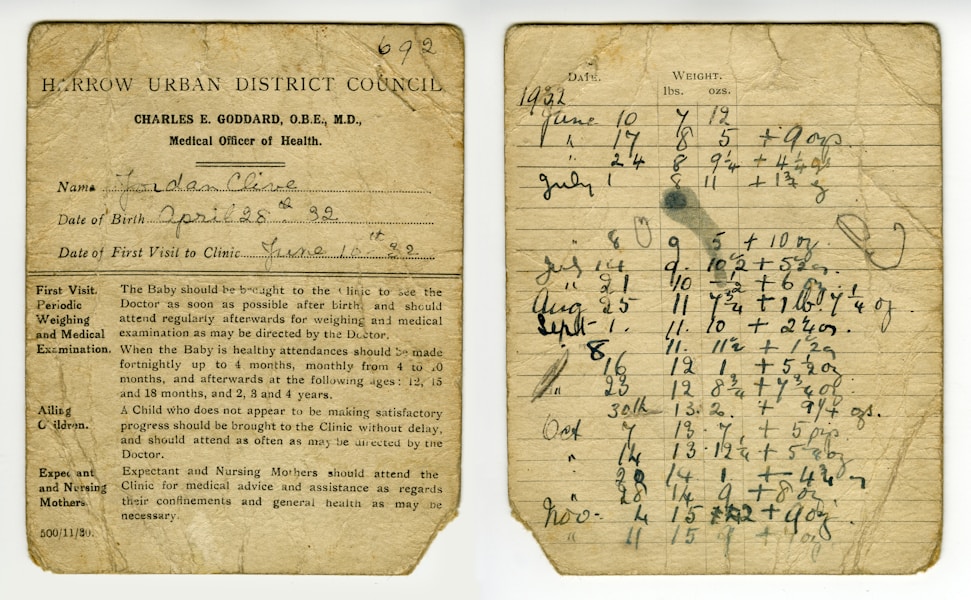 692
HARROW URBAN DISTRICT COUNCIL
CHARLES E. GODDARD, O.B.E., M.D.,
Medical Officer of Health.
Name Jordan Clive
Date of Birth April 28th 32
Date of First Visit to Clinic June 10th 32
First Visit. Periodic Weighing and Medical Examination.
The Baby should be brought to the Clinic to see the
Doctor as soon as possible after birth, and should
attend regularly afterwards for weighing and medical
examination as may be directed by the Doctor.
When the Baby is healthy attendances should be made
fortnightly up to 4 months, monthly from 4 to 10
months, and afterwards at the following ages: 12, 15
and 18 months, and 2, 3 and 4 years.
Ailing Children.
A Child who does not appear to be making satisfactory
progress should be brought to the Clinic without delay,
and should attend as often as may be directed by the
Doctor.
Expectant and Nursing Mothers.
Expectant and Nursing Mothers should attend the
Clinic for medical advice and assistance as regards
their confinements and general health as may be
necessary.
500/11/30.
DATE. WEIGHT.
lbs. ozs.
1932
June 10 7 12
" 17 8 5 + 9 ozs.
" 24 8 9¼ + 4¼ oz
July 1 8 11 + 1¾ oz
" 8 9 5 + 10 oz
July 14 9. 10½ + 5½ oz.
" 21 10 + 6 oz
Aug 25 11 7¾ + 1 lb. 7¼ oz.
Sept 1. 11. 10 + 2¼ oz.
8 11. 11½ + 1½ oz
16 12 1 + 5½ oz
" 23 12 8¾ + 7¾ oz
30th 13. 2. + 9¼ ozs.
Oct 7 13 7 + 5 ozs.
" 14 13 12¼ + 5¼ oz
20 14 1 + 4¾ oz
" 28 14 9 + 8 oz.
Nov- 4 15 2 + 9 oz
" 11 15 9 + 7 oz